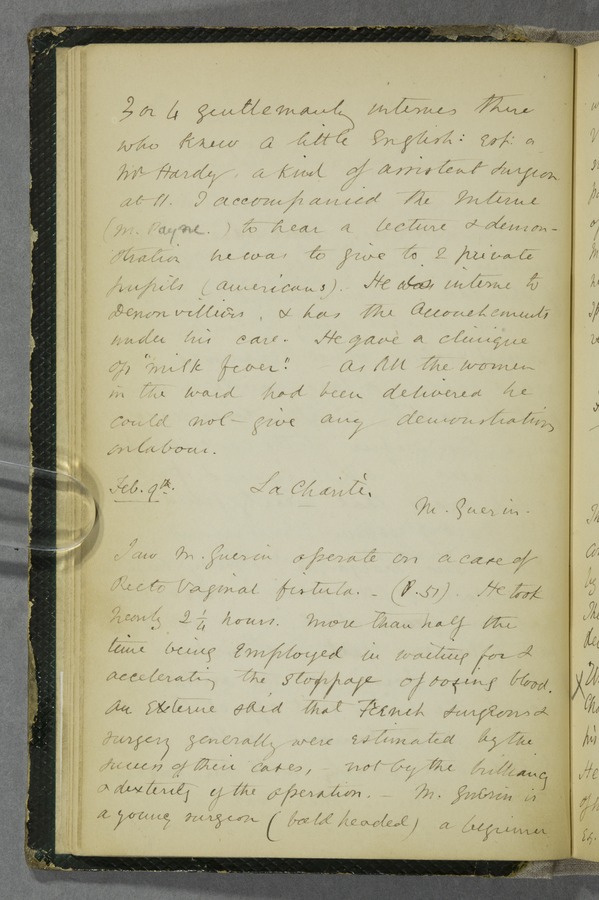 3 or 4 gentlemanly internes there
who knew a little English: esp: a
Mr Hardy, a kind of assistant surgeon
at 11. I accompanied the Interne
(M. Payne.) to hear a lecture & demon-
stration he was to give to 2 private
pupils (americans). He was interne to
Denonvilliers, & has the Accouchements
under his care. He gave a clinique
of "milk fever". As All the women
in the ward had been delivered he
could not give any demonstration
on labour.
Feb. 9th. La Charité.
M. Guerin.
I saw M. Guerin operate on a case of
Recto Vaginal fistula. - (P. 51). He took
nearly 2 1/4 hours. more than half the
time being Employed in waiting for &
accelerating the stoppage of oozing blood.
An Externe said that French surgeons &
surgery generally were estimated by the
success of their cases, - not by the brilliancy
& dexterity of the operation. - M. Guerin is
a young surgeon (bald headed) a beginner